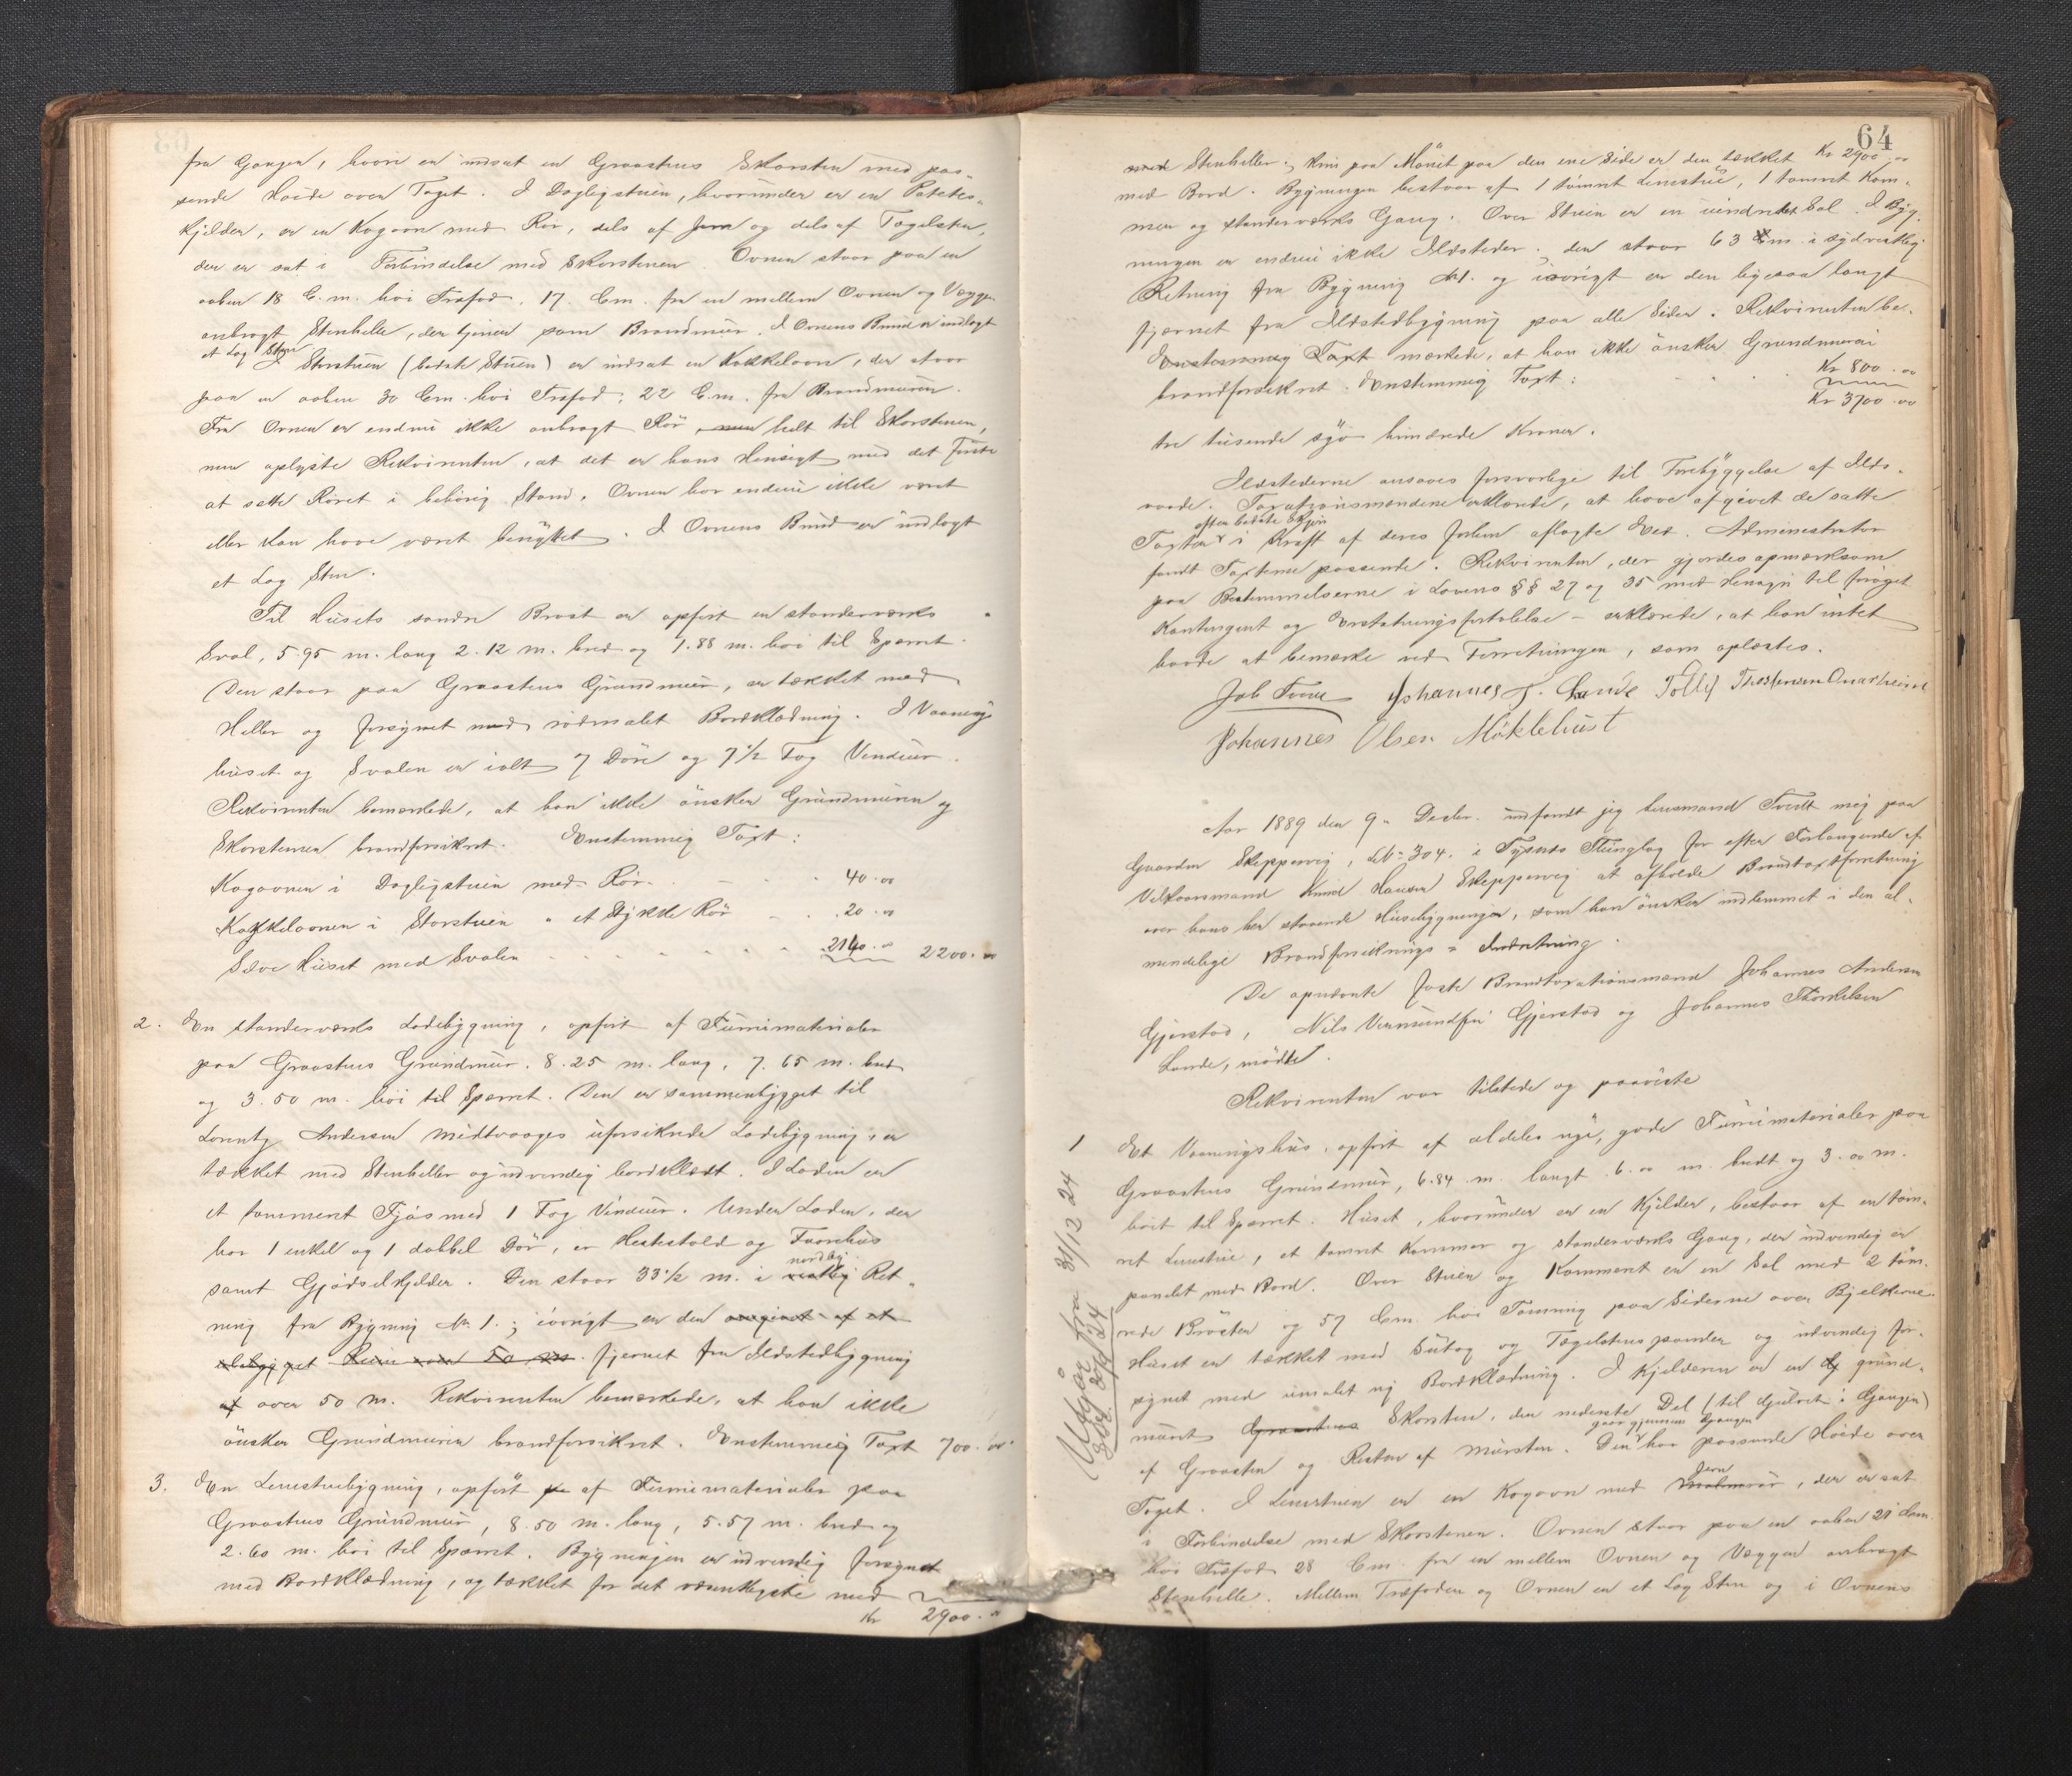 fra Gangen, hvori er indsat en Graastens Skorsten med pas-
sende Høide over Taget. I Dagligstuen, hvorunder er en Potetes-
kjelder, er en Kogeovn med Rør, dels af Jern og dels af Tagelsten,
der er sat i Forbindelse med Skorstenen. Ovnen staar paa en
aaben 18 C.m. høi Træfod, 17. Cm. fra en mellem Ovnen og Væggen
anbragt Stenhelle, der tjener som Brandmur. I Ovnens Bund er indlagt
et Lag Sten
I Storstuen (bedste Stuen) er indsat en Kakkelovn, der staar
paa en aaben 30 Cm. høi Træfod, 22 C.m. fra Brandmuren.
Fra Ovnen er endnu ikke anbragt Rør helt til Skorstenen,
men oplyste Rekvirenten, at det er hans Hensigt med det første
at sætte Røret i behørig Stand. Ovnen har endnu ikke været
eller kan have været benyttet. I Ovnens Bund er indlagt
et Lag Sten.
Til Husets søndre Brøst er opført en standerværks
Sval, 5.95 m. lang 2.12 m. bred og 1.88 m. høi til Sperret.
Den staar paa Graastens Grundmur, er tækket med
Heller og forsynet med rødmalet Bordklædning. I Vaanings
huset og Svalen er ialt 7 Døre og 7½ Fag Vinduer.
Rekvirenten bemærkede, at han ikke ønsker Grundmuren og
Skorstenen brandforsikret. Enstemmig Taxt:
Kogeovnen i Dagligstuen med Rør . . . 40.00
Kakkelovnen i Storstuen " et Stykke Rør . . 20.00
Selve Huset med Svalen . . . . . 2140.00 2200.00
2. En standerværks Ladebygning, opført af Furumaterialer
paa Graastens Grundmur. 8.25 m. lang, 7.65 m. bred
og 3.50 m. høi til Sperret. Den er sammenbygget til
Lorentz Andersen Midtvaages uforsikrede Ladebygning, er
tækket med Stenheller og udvendig bordklædt. I Laden er
et tømmeret Fjøs med 1 Fag Vinduer. Under Laden, der
har 1 enkel og 1 dobbel Dør, er Hestestald og Faarehus
nordlig
samt Gjødselkjelder. Den staar 33½ m. i vestlig Ret-
ning fra Bygning No 1.; iøvrigt er den
fjernet fra Ildstedbygning
af over 50 m. Rekvirenten bemærkede, at han ikke
ønsker Grundmuren brandforsikret. Enstemmig Taxt 700.00
3. En Lenestuebygning, opført af Furumaterialer paa
Graastens Grundmur, 8.50 m. lang, 5.57 m. bred og
2.60 m. høi til Sperret. Bygningen er udvendig forsynet
med Bordklædning, og tækket for det væsentligste med
Kr 2900.00
64
med Stenheller; kun paa Mønet paa den ene Side er den tækket Kr 2900.00
med Bord. Bygningen bestaar af 1 tømret Lenestue, 1 tømret Kam-
mer og standerværks Gang. Over Stuen er en uindredet Sal. I Byg-
ningen er endnu ikke Ildsteder; den staar 63 m. i sydvestlig
Retning fra Bygning No 1. og iøvrigt er den ligesaa langt
fjernet fra Ildstedbygning paa alle Sider. Rekvirenten be-
Enstemmig Taxt mærkede, at han ikke ønsker Grundmuren
brandforsikret. Enstemmig Taxt: . . . Kr 800.00
Kr 3700.00
tre tusende syv hundrede Kroner.
Ildstederne ansaaes forsvarlige til Forebyggelse af Ilds-
vaade. Taxationsmændene erklærede, at have afgivet de satte
efter bedste Skjøn
Taxter i Kraft af deres forhen aflagte Eed. Administrator
fandt Taxterne passende. Rekvirenten, der gjordes opmærksom
paa Bestemmelserne i Lovens §§ 27 og 35 med Hensyn til forøget
Kontingent og Erstatningsfortabelse – erklærede, at han intet
havde at bemærke ved Forretningen, som oplæstes.
Jab Tvedt Johannes T. Lande Tollef Thorstensen Onarheim
Johannes Olsen Møklebust
Aar 1889 den 9. Decbr. indfandt jeg Lensmand Tvedt mig paa
Gaarden Skeppevig, LNo 304. i Tysnes Thinglag for efter Forlangende af
Vilkaarsmand Knud Hansen Skeppevig at afholde Brandtaxtforretning
over hans her staaende Husebygninger, som han ønsker indlemmet i den al-
mindelige Brandforsikrings-Indretning.
De opnævnte faste Brandtaxationsmænd Johannes Andersen
Gjerstad, Nils Vermundsen Gjerstad og Johannes Thorkelsen
Lande, mødte.
Rekvirenten var tilstede og paaviste
1 Et Vaaningshus, opført af aldeles nye, gode Furumaterialer paa
Graastens Grundmur, 6.84 m. langt 6.00 m. bredt og 3.00 m.
høit til Sperret. Huset, hvorunder er en Kjelder, bestaar af en tøm-
ret Lenestue, et tømret Kammer og standerværks Gang, der indvendig er
panelet med Bord. Over Stuen og Kammeret er en Sal med 2 tøm-
rede Brøster og 57 Cm. høi Tømring paa Siderne over Bjelkerne.
Huset er tækket med Sutag og Tegelstens panner og udvendig for-
synet med umalet ny Bordklædning. I Kjelderen er en grund-
muret Graastens Skorsten, den nederste Del (til Gulvet i Gangen)
gaar gjennem Gangen
af Graasten og Resten af Mursten. Den har passende Høide over
Jern
Taget. I Lenestuen er en Kogeovn med , der er sat
i Forbindelse med Skorstenen. Ovnen staar paa en aaben 21 Cm.
høi Træfod 28 Cm. fra en mellem Ovnen og Væggen anbragt
Stenhelle. Mellem Træfoden og Ovnen er et Lag Sten og i Ovnens
Utgår fra 31/12 24